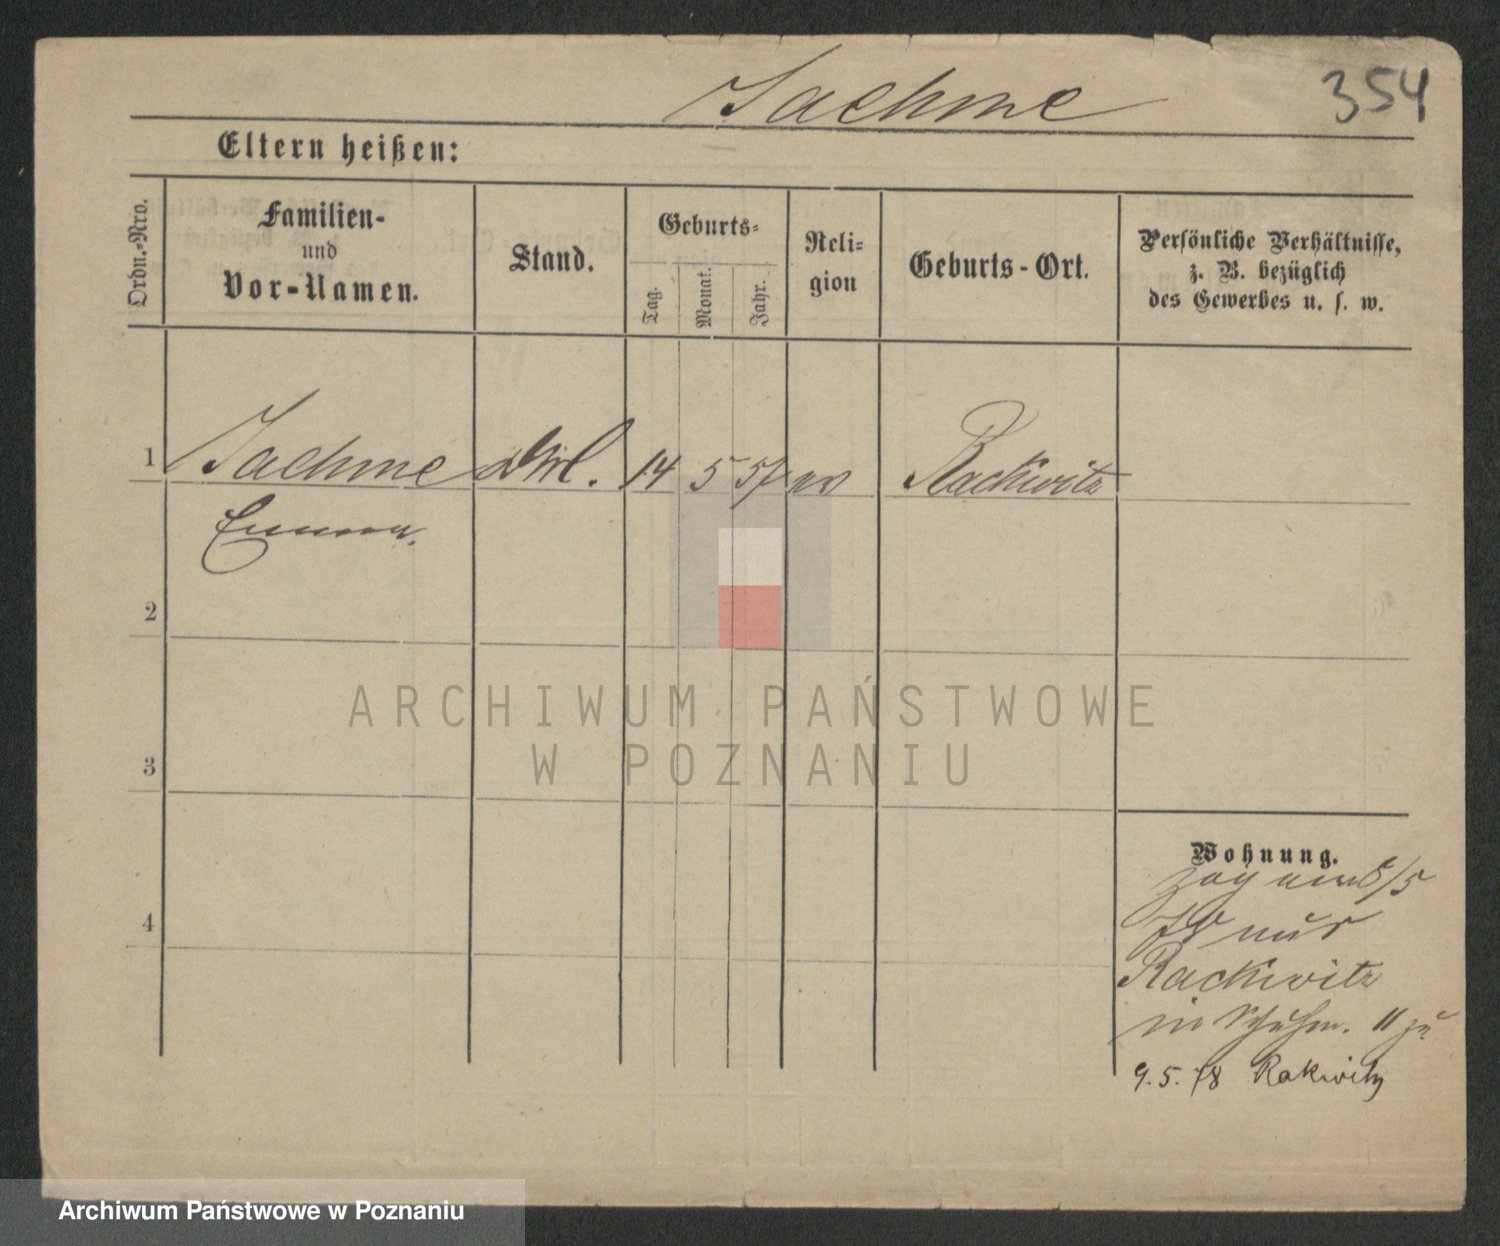 Jachme
354
Eltern heißen:
Ordn.-Nro.
Familien-
und
Vor-Namen.
Stand.
Geburts-
Tag.
Monat.
Jahr.
Reli-
gion
Geburts-Ort.
Persönliche Verhältnisse,
z. B. bezüglich
des Gewerbes u. s. w.
1 Jachme 14 5 57 Rackwitz
Emma.
2
3
4
Wohnung.
zog 6/5
Rackwitz
in 11 zu
9. 5. 78 Rakwitz
ARCHIWUM PAŃSTWOWE
W POZNANIU
Archiwum Państwowe w Poznaniu